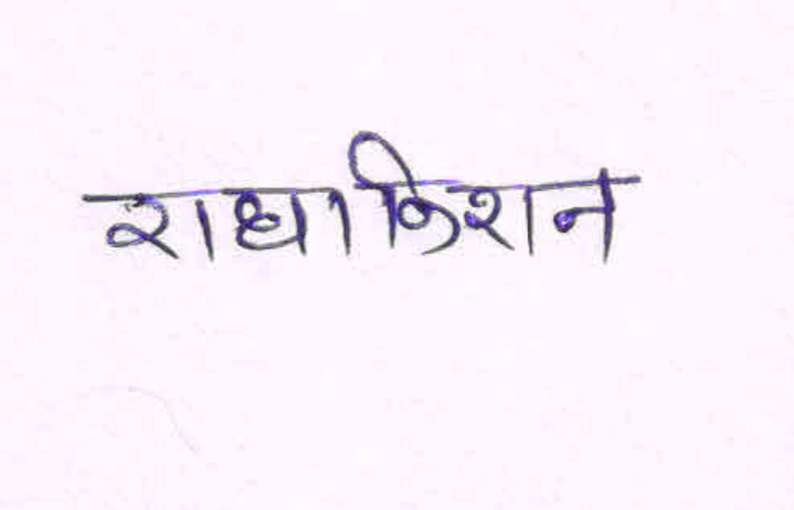 राधाकिशन